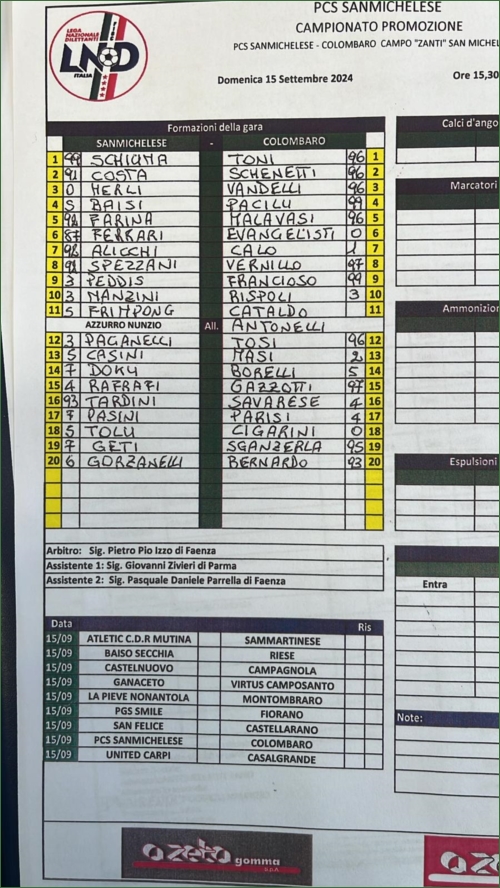 PCS SANMICHELESE
CAMPIONATO PROMOZIONE
PCS SANMICHELESE - COLOMBARO CAMPO "ZANTI" SAN MICHEL
LEGA NAZIONALE DILETTANTI
FIGC
LND
ITALIA
Domenica 15 Settembre 2024 Ore 15,30
Formazioni della gara
SANMICHELESE - COLOMBARO
1 99 SCHIUMA TONI 96 1
2 91 COSTA SCHENETTI 96 2
3 0 MERLI VANDELLI 96 3
4 5 BAISI PACILLI 99 4
5 98 FARINA MALAVASI 96 5
6 87 FERRARI EVANGELISTI 0 6
7 98 ALICCHI CALO 1 7
8 91 SPEZZANI VERNILLO 97 8
9 3 PEDDIS FRANCIOSO 99 9
10 3 MANZINI RISPOLI 3 10
11 5 FRIMPONG CATALDO 11
AZZURRO NUNZIO All. ANTONELLI
12 3 PAGANELLI TOSI 96 12
13 5 CASINI MASI 2 13
14 7 DOKU BORELLI 5 14
15 4 GAZZOTTI 97 15
16 93 TARDINI SAVARESE 4 16
17 7 PASINI PARISI 4 17
18 5 TOLU CIGARINI 0 18
19 7 GETI SGANZERLA 95 19
20 6 GORZANELLI BERNARDO 93 20
Arbitro: Sig. Pietro Pio Izzo di Faenza
Assistente 1: Sig. Giovanni Zivieri di Parma
Assistente 2: Sig. Pasquale Daniele Parrella di Faenza
Data Ris
15/09 ATLETIC C.D.R MUTINA SAMMARTINESE
15/09 BAISO SECCHIA RIESE
15/09 CASTELNUOVO CAMPAGNOLA
15/09 GANACETO VIRTUS CAMPOSANTO
15/09 LA PIEVE NONANTOLA MONTOMBRARO
15/09 PGS SMILE FIORANO
15/09 SAN FELICE CASTELLARANO
15/09 PCS SANMICHELESE COLOMBARO
15/09 UNITED CARPI CASALGRANDE
Calci d'ango
Marcatori
Ammonizion
Espulsioni
Entra
Note:
a zeta gomma s.p.a.
a ze